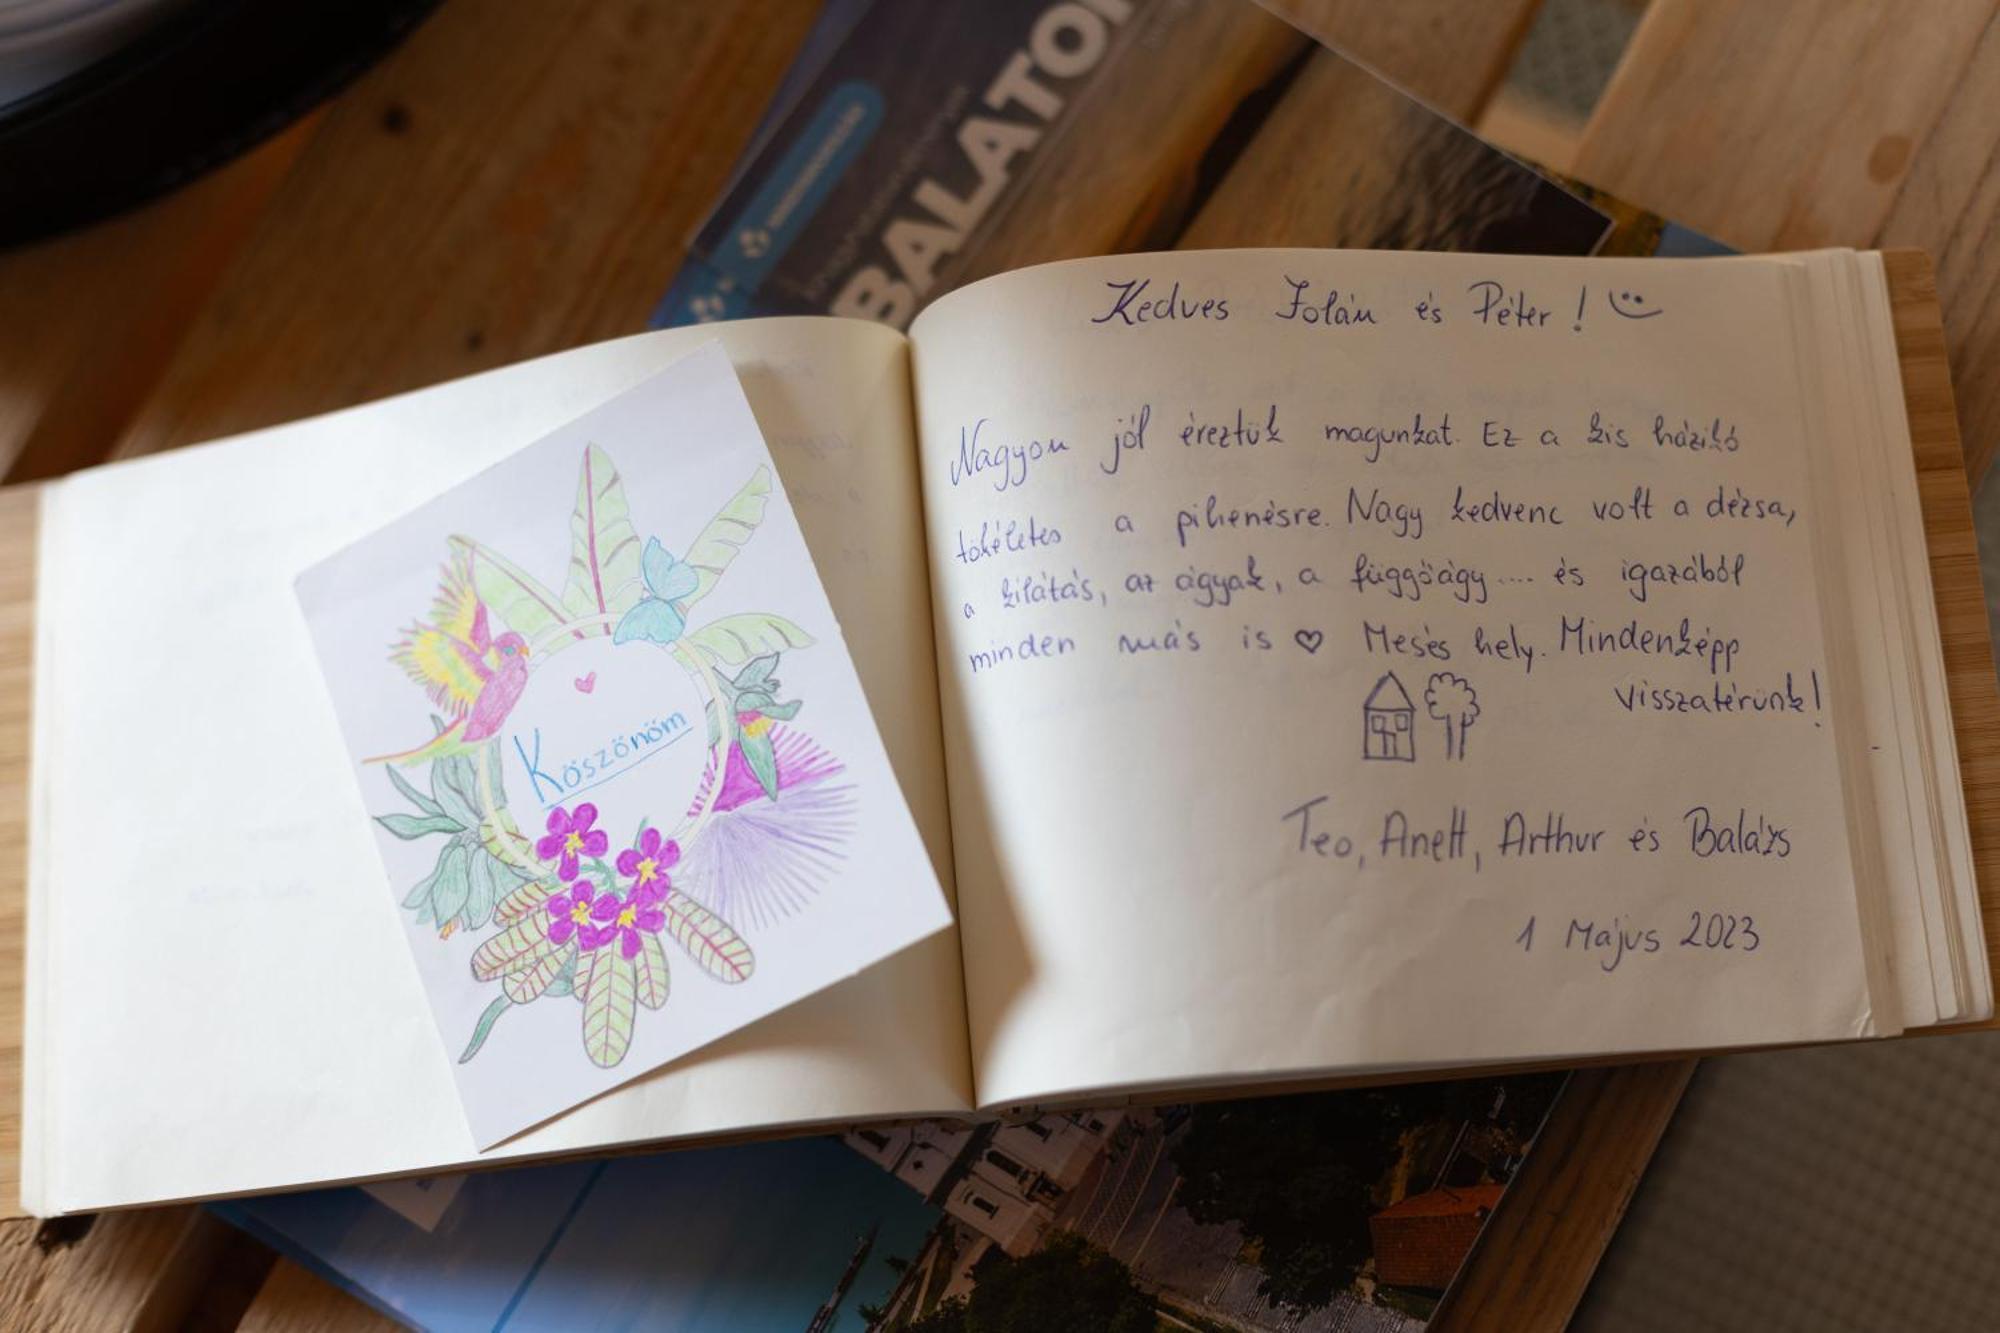 BALATON
Köszönöm
Kedves Jolán és Péter!
Nagyon jól éreztük magunkat. Ez a kis házikó
tökéletes a pihenésre. Nagy kedvenc volt a dézsa,
a kilátás, az ágyak, a függőágy .... és igazából
minden más is ♡ Mesés hely. Mindenképp
visszatérünk!
Teo, Anett, Arthur és Balázs
1 Május 2023